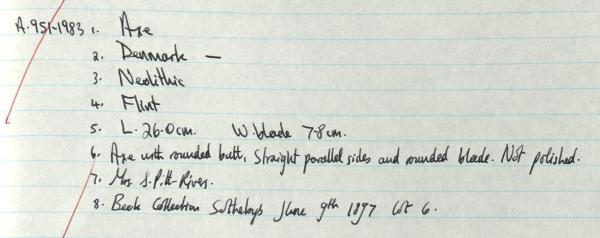 A.951-1983 1. Axe
2. Denmark —
3. Neolithic
4. Flint
5. L. 26.0cm. W. blade 7.8cm.
6. Axe with rounded butt, straight parallel sides and rounded blade. Not polished.
7. Mrs S. Pitt-Rivers.
8. Beck Collection Sothebys June 9th 1897 lot 6.